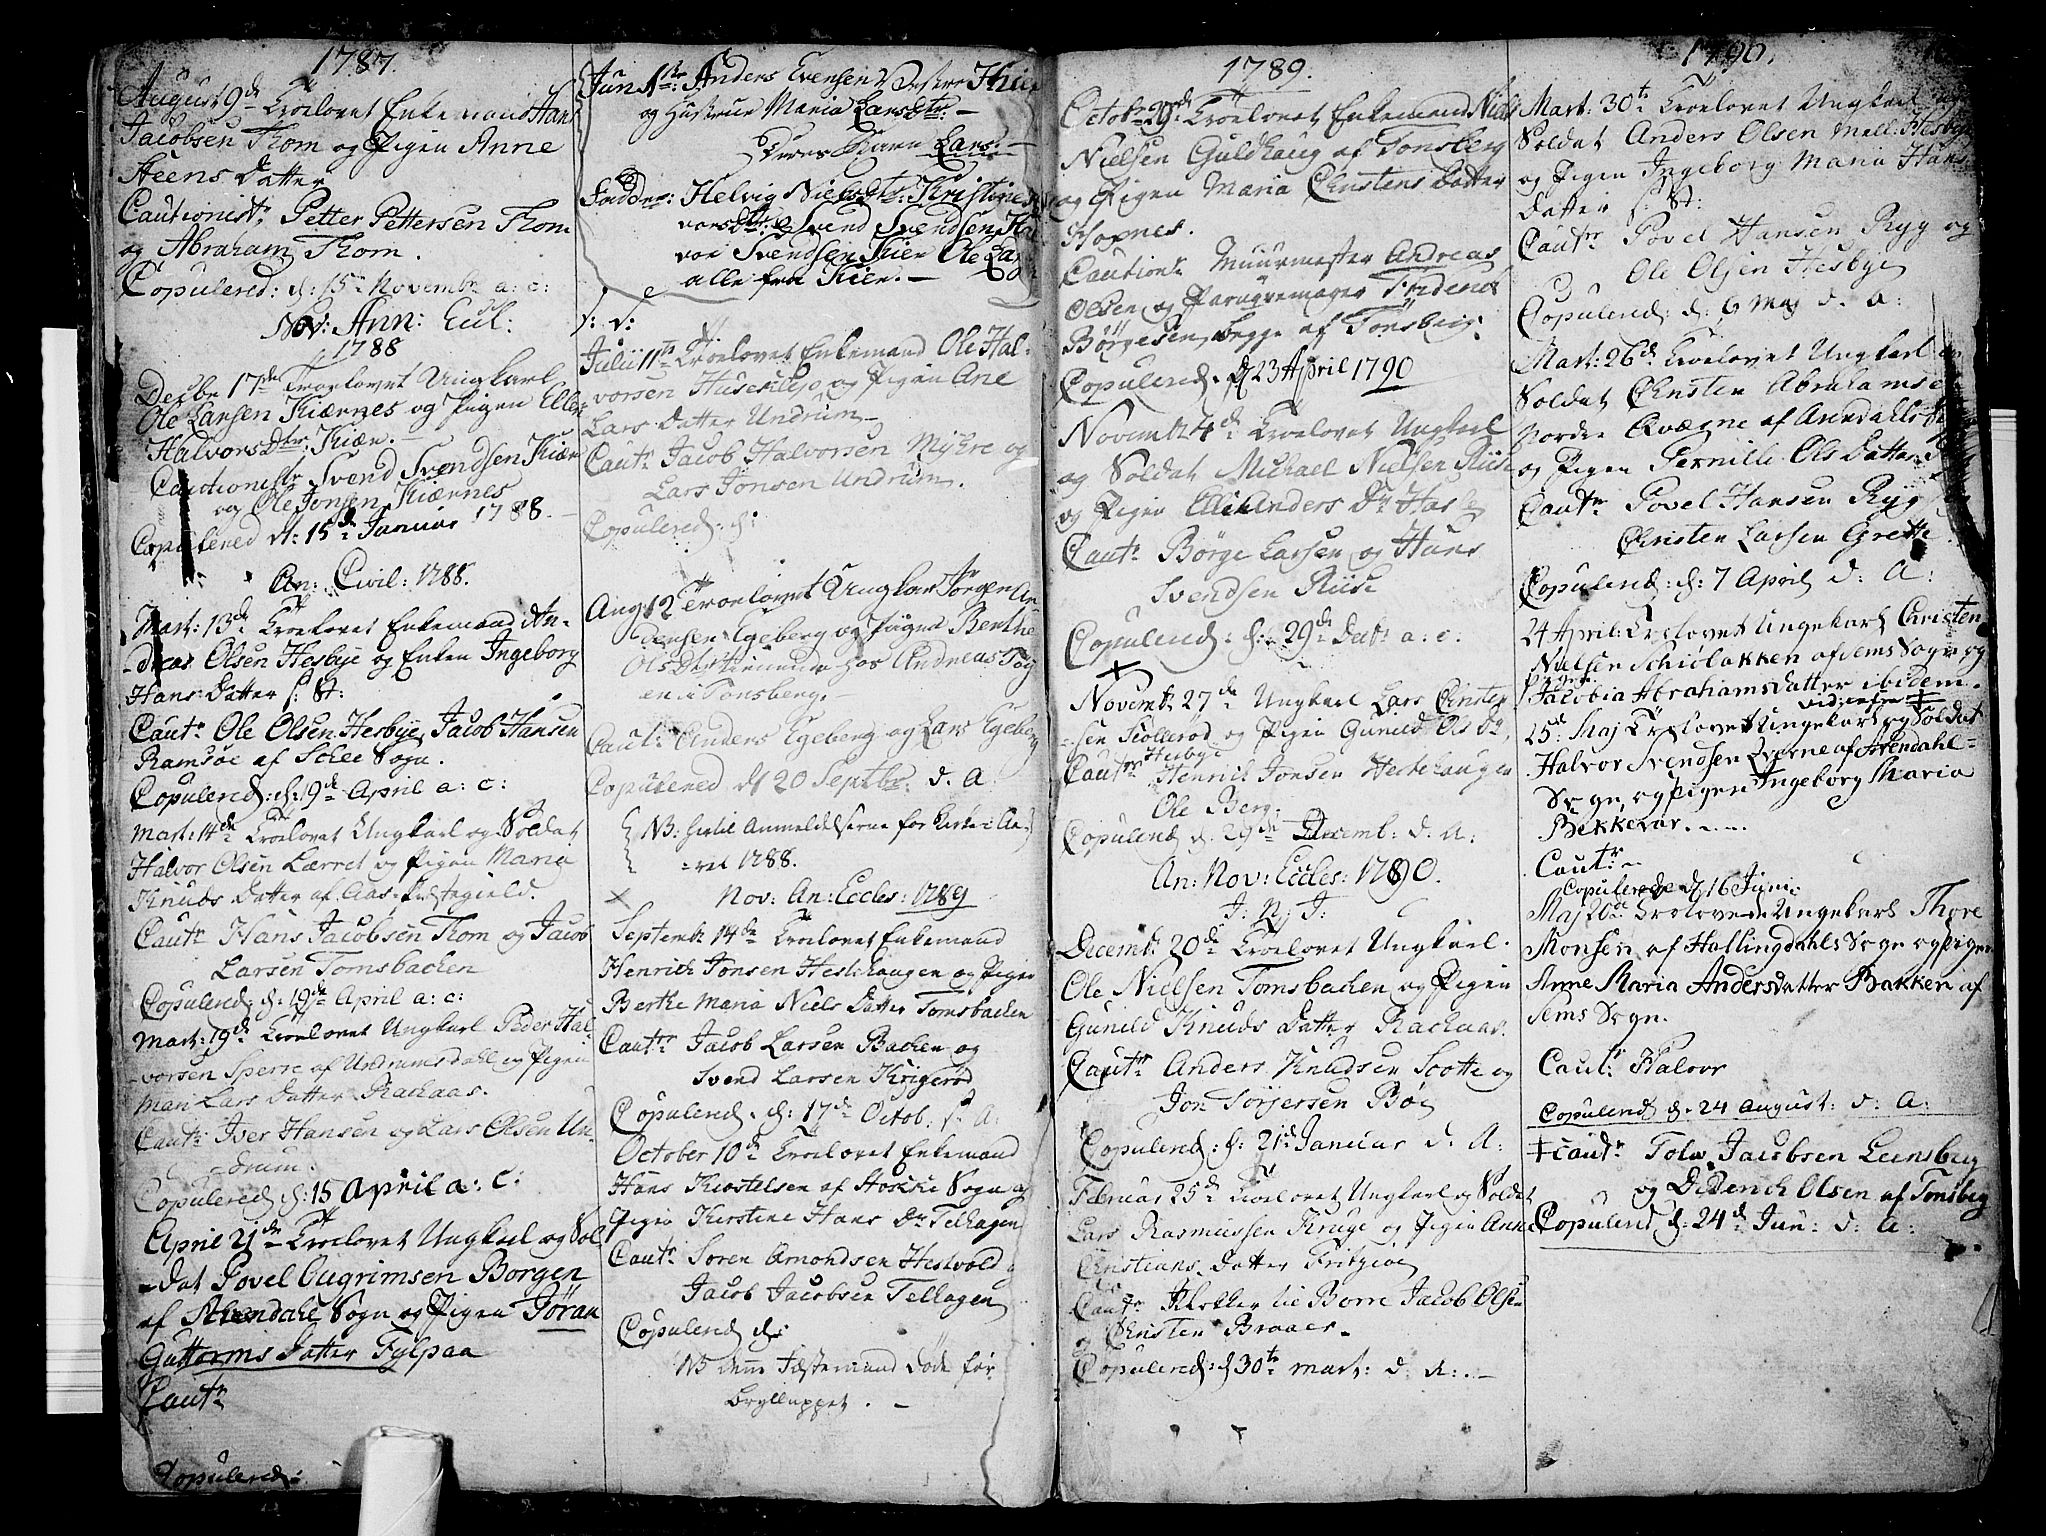 1787.
August 9de Troelovet Enkemand Hans
Jacobsen Thom og Pigen Anne
Steens Datter
Cautionistr Petter Pettersen Thom
og Abraham Thom.
Copulered: d: 15de Novembr a: c:
Nov: Ann: Eccl:
1788
Decbr 17de Troelovet Ungkarl
Ole Larsen Kiærnes og Pigen Ellen
Halvors Dtr: Kiær. —
Cautionistr Svend Svendsen Kiær
og Ole Jonsen Kiærnes
Copulered d: 15de Januar 1788. —
An: Civil: 1788.
Mart: 13de Troelovet Enkemand An-
dreas Olsen Hesbye og Enken Ingeborg
Hans Datter s: St:
Cautr Ole Olsen Hesbye, Jacob Hansen
Ramsøe af Schee Sogn.
Copulered: d: 9de April a: c:
Mart: 14de Troelovet Ungkarl og Soldat
Halvor Olsen Lærret og Pigen Maria
Knuds Datter af Aas Præstegield.
Cautr Hans Jacobsen Thom og Jacob
Larsen Tomsbachen
Copulered: d: 19de April a: c:
Mart: 19de Troelovet Ungkarl Peder Hal-
vorsen Sperre af Undrumsdahl og Pigen
Mari Lars Datter Rachaas.
Cautr Iver Hansen og Lars Olsen Un-
drum.
Copulered d: 15 April a: c:
April 21de Troelovet Ungkarl og Sol-
dat Povel Gugrimsen Borgen
af Arendahl Sogn og Pigen Jøran
Guttorms Datter Fylpaa
Cautr
Copulered:
Jun 1te: Anders Evensen Vestre Kiær
og Hustrue Maria Larsdtr: —
Deres Barn Lars. —
Faddere: Helvig Nielsdtr: Kristine
varsdtr: Svend Svendsen, Hal
vor Svendsen Kiær Ole Lars
alle fra Kiær. —
s: d:
Julii 11te Troelovet Enkemand Ole Hal-
vorsen Huseklep og Pigen Ane
Lars Datter Undrum
Cautr Jacob Halvorsen Myhre og
Lars Jonsen Undrum.
Copulered: d:
Aug 12 Troelovet Ungkar Jørgen An-
dersen Egeberg og Pigen Berthe
Ols Dtr tienende hos Andreas Tøy
en i Tonsberg. —
Cautr Anders Egeberg og Lars Egeberg
Copulered d 20 Septbr: d. A
NB: hertil Anmeldelserne for Kirke-Aa-
ret 1788.
Nov: An: Eccles: 1789
Septembr 14de Troelovet Enkemand
Henrich Jonsen Hestehaugen og Pigen
Berthe Maria Niels Datter Tomsbachen
Cautr Jacob Larsen Bachen og
Svend Larsen Krigerød
Copulered. d: 17de Octob. s. A:
October 10de Troelovet Enkemand
Hans Kiostelsen af Sogn og
Pigen Kirstine Hans Dr Telhagen
Cautr Søren Amondsen Hestvold
Jacob Jacobsen Telhagen
Copulered d:
NB denne Fæstemand døde før
Brylluppet. —
1789.
Octobr 29de Troelovet Enkemand Niels
Nielsen Guldhaug af Tonsberg
og Pigen Maria Christens Datter
Hoxnes.
Cautionr Muurmester Andreas
Olsen og Paruqvemager Fridench
Børgesen, begge af Tønsberg.
Copulered. d 23 April 1790
Novembr 4de Troelovet Ungkarl
og Soldat Michael Nielsen Riise
og Pigen Ellen Anders Dr Hasle
Cautr Børge Larsen og Hans
Svendsen Riise
Copulered: d: 29de Dctr a: c:
Novembr 27de Ungkarl Lars Christen
sen Scollerød og Pigen Gunild Ols Dr
Hesbye
Cautr Henrik Jonsen Hestehaugen
Ole Berg.
Copulered d. 29de Decemb: d. A:
An: Nov: Eccles: 1790.
J: N: J:
Decembr 20de Troelovet Ungkarl.
Ole Nielsen Tomsbachen og Pigen
Gunild Knuds Datter Rachaas.
Cautr Anders Knudsen Scotte og
Jon Torjersen Bøe
Copulered: d: 21de Januar d: A:
Februar 25de Troelovet Ungkarl og Soldat
Lars Rasmussen Kruge og Pigen Anne
Christians Datter Fritzioe
Cautr Klokker til Borre Jacob Olsen
og Christen Braaer.
Copulered: d 30te Mart: d: A:. —
1790.
Mart: 30te Troelovet Ungkarl og
Soldat Anders Olsen Mell: Hesbye
og Pigen Ingeborg Maria Hans
Datter s: St:
Cautr Povel Hansen Ryg og
Ole Olsen Hesbye
Copulered: d: 6 Maj d. A:
Mart: 26de Troelovet Ungkarl og
Soldat Christen Abrahamse
Nordre Qværne af Arendahls
og Pigen Pernille Ols Datter
Cautr Povel Hansen Ryg
Christen Larsen Grette
Copulered: d: 7 April d: A:
24 April: Trolovet Ungekarl Christen
Nielsen Schiølakken af Sems Sogn og
Pigen
Jacobia Abrahamsdatter ibidem.
vid: infra ‡
25de Maj Trolovet Ungekarl og Soldat
Halvor Svendsen Qverne af Arendahl-
Sogn, og Pigen Ingeborg Maria
Bekkevar. . . . .
Cautr ~
Copulerede d 16 Juni.
Maj 20de Trolovede Ungekarl Thore
Monsen af Hallingdahls Sogn og Pigen
Anne Maria Andersdatter Bakken af
Sems Sogn.
Cautr Halvor
Copulered d. 24 August: d. A:
‡ Cautr Tolv Jacobsen Leensberg
og Diderich Olsen af Tonsberg
Copulered d: 24de Jun: d: A: